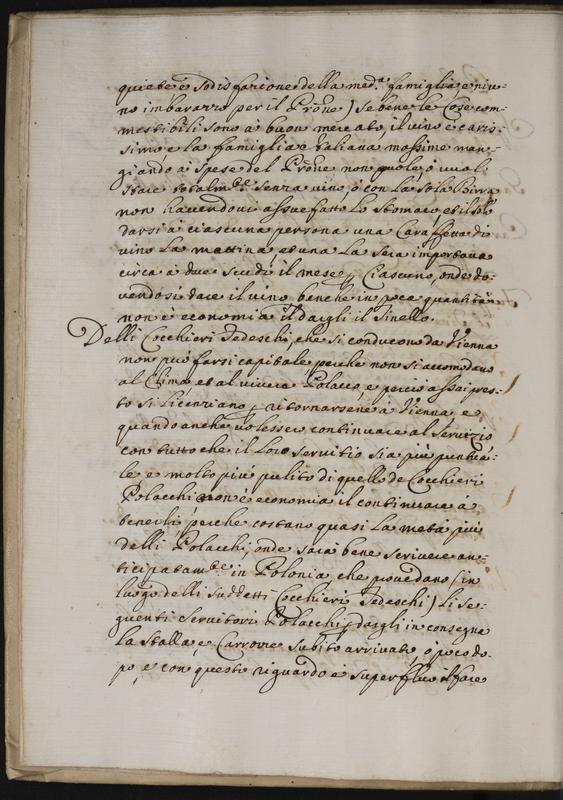 quiete e sodisfazione della med.ᵃ famiglia e niu=
no imbarazzo per il Prōne) se bene le Cose com=
mestibili sono à buon mercato, il vino è caris=
simo e la famiglia Italiana massime man=
giando à spese del Prōne non vuole, ò vuol
stare totalm.ᵗᵉ senza vino, ò con la sola Birra
non havendovi assuefatto lo stomaco et il solo
darsi à ciascuna persona una Caraffetta di
vino la mattina et una la sera importava
circa à due scudi il mese p Ciascuno, onde do=
vendosi dare il vino benche in poca quantità
non è economia il dargli il Tinello.
Delli Cocchieri Tedeschi, che si conducono da Vienna
non può farsi capitale perche non si accomodano
al Clima, et al vivere Polacco, e perciò assai pres=
to si licenziano p ritornarsene à Vienna e
quando anche volessero continuare al servizio
con tutto che il loro servitio sia più puntua=
le e molto più pulito di quello de Cocchieri
Polacchi non è economia il continuare à
tenerli, perche costano quasi la metà più
delli Polacchi, onde sarà bene scrivere an=
ticipatam.ᵗᵉ in Polonia che provedano (in
luogo delli suddetti Cocchieri Tedeschi) li se=
guenti servitori Polacchi p dargli in consegna
la stalla e Carrozze subito arrivati, ò poco do=
po, e con questo riguardo è superfluo il fare